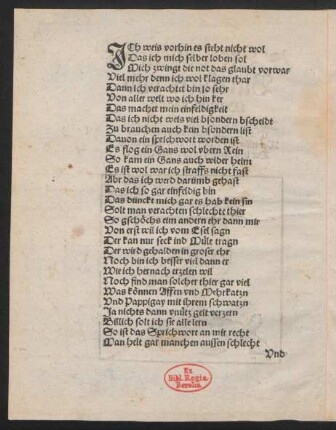 ICh weis vorhin es steht nicht wol
Das ich mich selber loben sol
Mich zwingt die not das glaubt vorwar
Viel mehr denn ich wol klagen thar
Dann ich verachtet bin so sehr
Von aller welt wo ich hin ker
Das machet mein einfeldigkeit
Das ich nicht weis viel bsondern bscheidt
Zu brauchen auch kein bsondern list
Dauon ein sprichwort worden ist
Es flog ein Gans wol vbern Rein
So kam ein Gans auch wider heim
Es ist wol war ich straffs nicht fast
Abr das ich werd darumb gehast
Das ich so gar einfeldig bin
Das dünckt mich gar es hab kein sin
Solt man verachten schlechte thier
So gschöchs eim andern ehr dann mir
Von erst wil ich vom Esel sagn
Der kan nur seck ind Müle tragn
Der wird gehalden in groser ehr
Noch bin ich besser viel dann er
Wie ich hernach erzelen wil
Noch find man solcher thier gar viel
Was können Affen vnd Mehrkatzn
Vnd Pappigay mit ihrem schwatzn
Ja nichts dann vnütz gelt verzern
Billich solt ich sie alle lern
So ist das Sprichwort an mir recht
Man helt gar manchen aussen schlecht
Vnd
Ex
Bibl. Regia
Berolin.